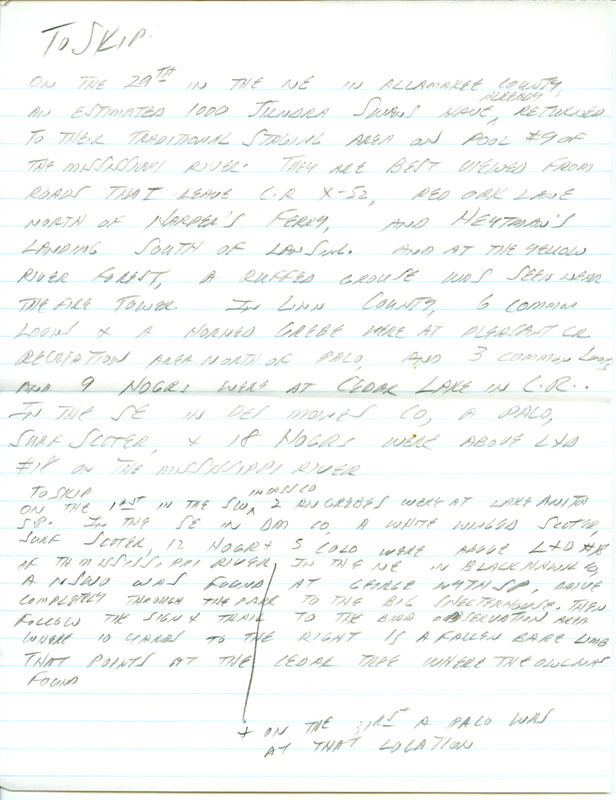 TO SKIP.
ON THE 29TH IN THE NE IN ALLAMAKEE COUNTY,
ALREADY
AN ESTIMATED 1000 TUNDRA SWANS HAVE, RETURNED
TO THEIR TRADITIONAL STAGING AREA ON POOL #9 OF
THE MISSISSIPPI RIVER. THEY ARE BEST VIEWED FROM
ROADS THAT LEAVE C.R X-52, RED OAK LANE
NORTH OF HARPER'S FERRY, AND HEYTMAN'S
LANDING SOUTH OF LANSING. AND AT THE YELLOW
RIVER FOREST, A RUFFED GROUSE WAS SEEN NEAR
THE FIRE TOWER. IN LINN COUNTY, 6 COMMON
LOONS & A HORNED GREBE WERE AT PLEASANT CR
RECREATION AREA NORTH OF PALO, AND 3 COMMON LOONS
AND 9 HOGRS WERE AT CEDAR LAKE IN C.R..
IN THE SE IN DES MOINES CO, A PALO,
SURF SCOTER, & 18 HOGRS WERE ABOVE L&D
#18 ON THE MISSISSIPPI RIVER
TO SKIP
IN CASS CO
ON THE 1RST IN THE SW, 2 RN GREBES WERE AT LAKE ANITA
SP. IN THE SE IN DM CO, A WHITE WINGED SCOTER,
SURF SCOTER, 12 HOGR & 5 COLO WERE ABOVE L&D #18
OF TH MISSISSIPPI RIVER, IN THE NE IN BLACK HAWK CO,
A NSWO WAS FOUND AT GEORGE WYTH SP, DRIVE
COMPLETELY THROUGH THE PARK TO THE BIG SHELTERHOUSE. THEN
FOLLOW THE SIGN & TRAIL TO THE BIRD OBSERVATION AREA
WHERE 10 YARDS TO THE RIGHT IS A FALLEN BARE LIMB
THAT POINTS AT THE CEDAR TREE WHERE THE OWL WAS
FOUND
+ ON THE 31RST A PALO WAS
AT THAT LOCATION